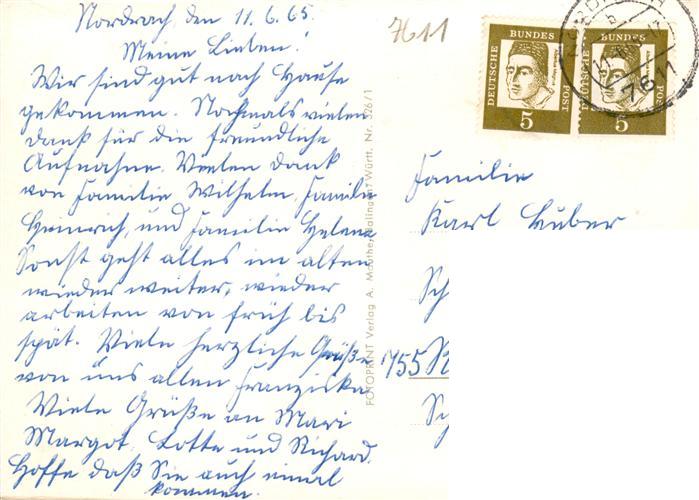 Nordrach, den 11.6.65.
Meine Lieben!
Wir sind gut nach Hause
gekommen. Nochmals vielen
dank für die freundliche
Aufnahme. Vielen dank
von Familie Wilhelm, Familie
Heinrich, und Familie Helene
Sonst geht alles im alten
wieder weiter, wieder
arbeiten von früh bis
spät. Viele herzliche Grüße
von uns allen Franziska
Viele Grüße an Mari
Margot, Lotte und Richard.
Hoffe daß Sie auch einmal
kommen.
7611
DEUTSCHE BUNDESPOST
5
DEUTSCHE BUNDESPOST
5
7611
FOTOPRINT Verlag A. Württ. Nr. 326/1
Familie
Karl Huber
Sch
755
Sch